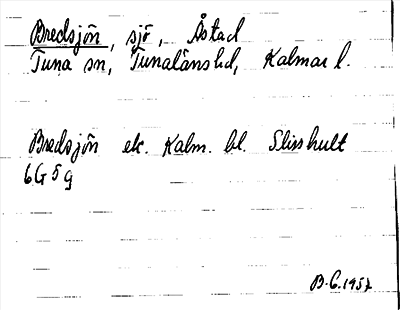 Bredsjön, sjö, Åstad
Tuna sn, Tunalänshd, Kalmar l.
Bredsjön ek. Kalm. bl. Slisshult
6G5g
B.G. 1957